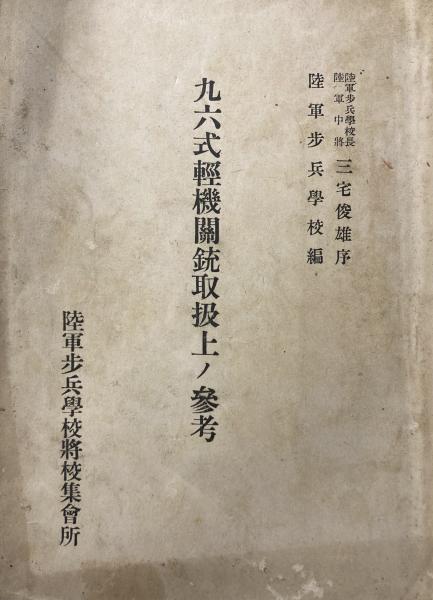 陸軍步兵學校長
陸軍中將
三宅俊雄序
陸軍步兵學校編
九六式輕機關銃取扱上ノ參考
陸軍步兵學校將校集會所